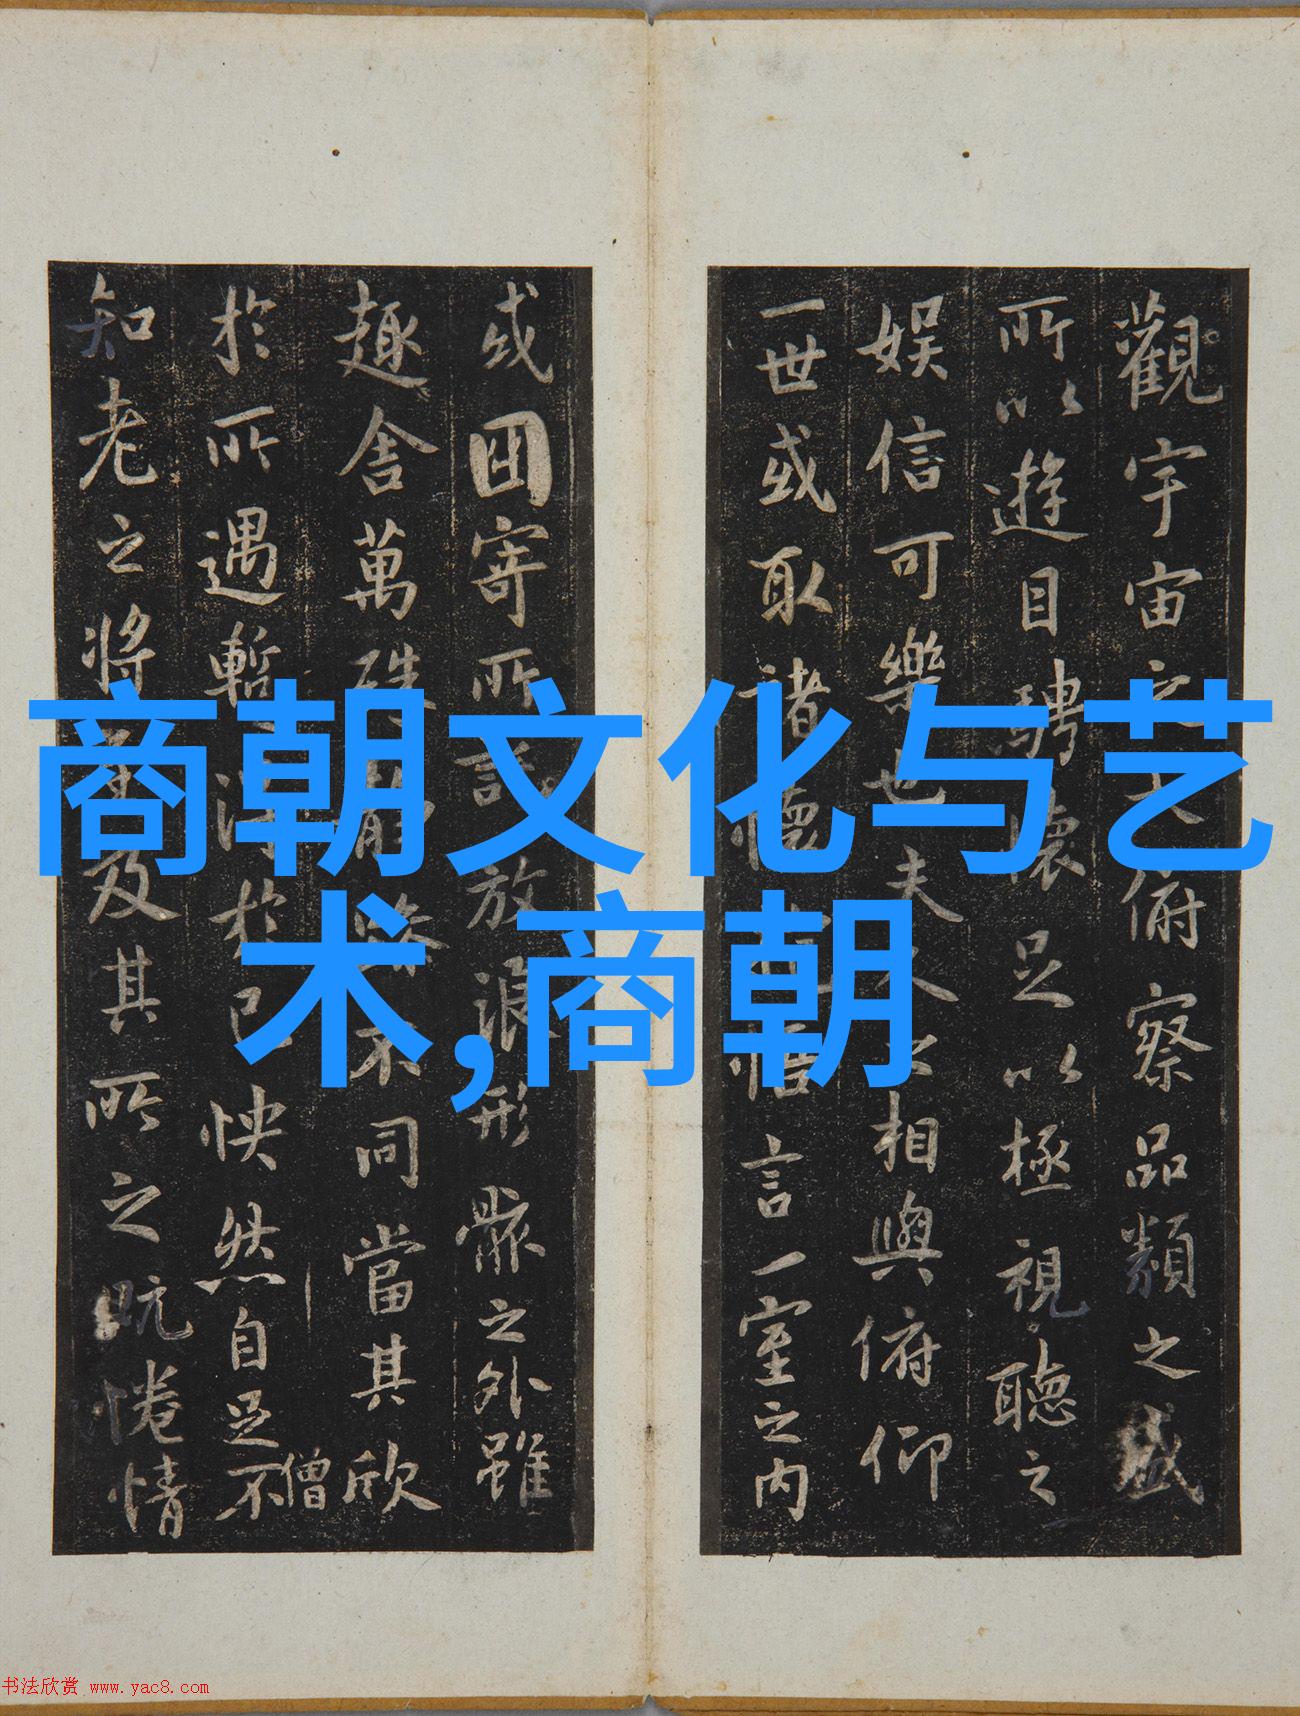 商朝文化与艺
术,商朝
觀宇宙之大俯察品類之盛
所以遊目騁懷足以極視聽之
娛信可樂也夫人之相與俯仰
一世或取諸懷抱悟言一室之內
或因寄所託放浪形骸之外雖
趣舍萬殊靜躁不同當其欣
於所遇暫得於己怏然自足不
僧
知老之將至及其所之既惓情
书法欣赏 www.yac8.com